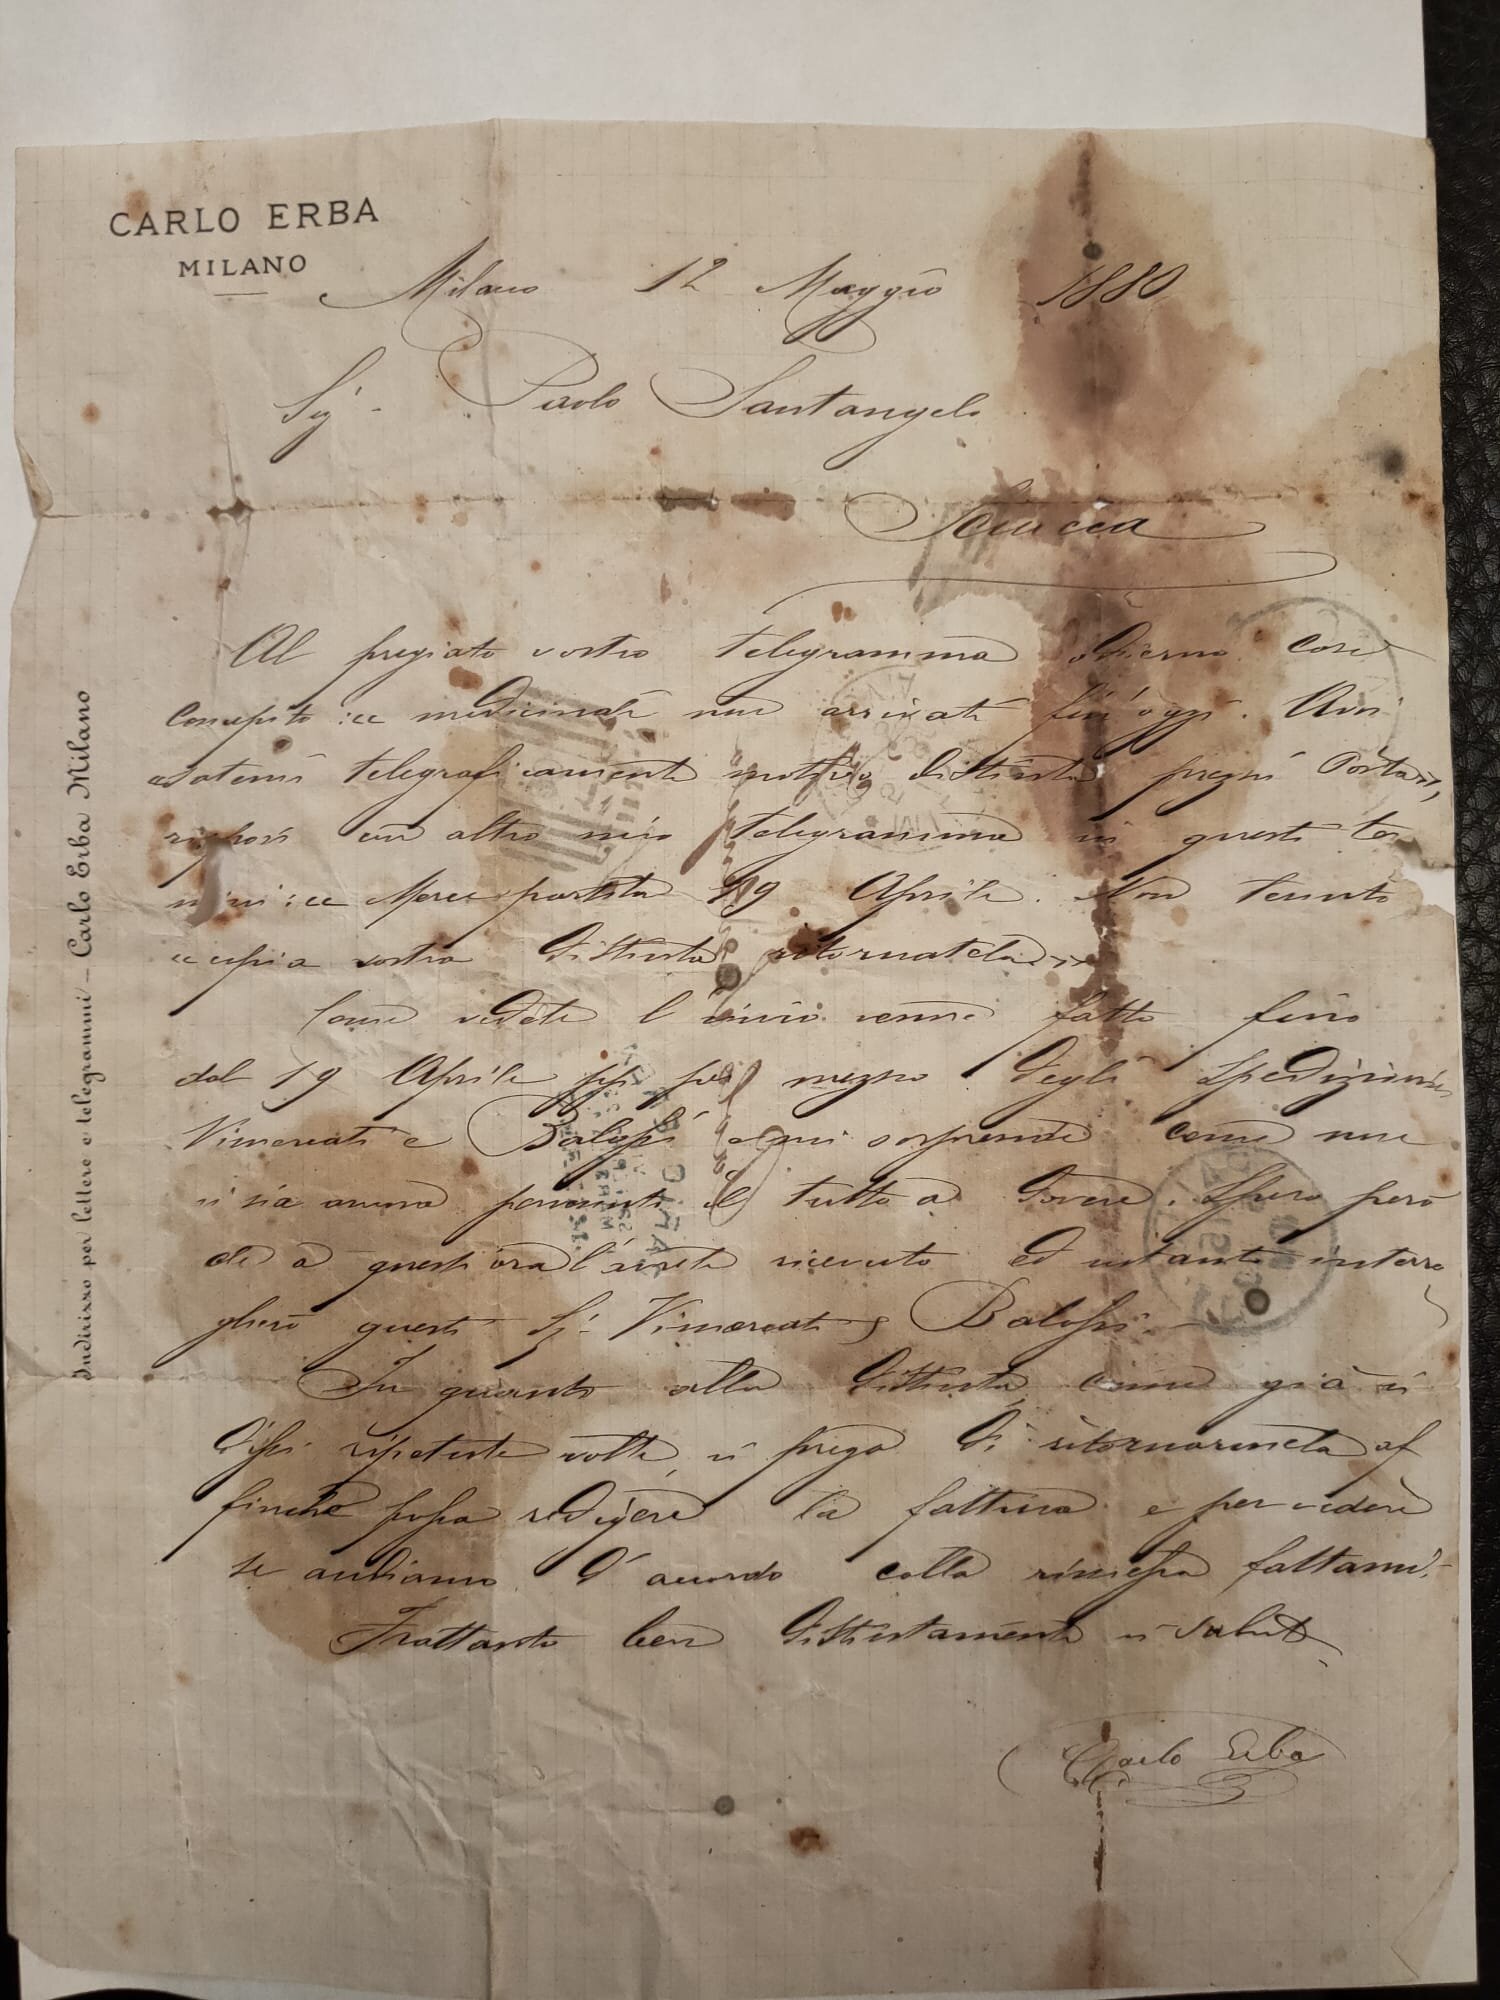 CARLO ERBA
MILANO
Milano 12 Maggio 1880
Sigʳ Paolo Santangelo
Sciacca
Al pregiato vostro telegramma odierno così
concepito: " medicinali non arrivati fin'oggi. Avvi
"satemi telegraficamente motivo distinta prezzi Porta",
risposi con altro mio telegramma in questi ter
mini: " Merce partita 19 Aprile. Non tenuto
"copia vostra distinta ritornatela"
Come vedete l'invio venne fatto fino
dal 19 Aprile pp per mezzo degli Spedizionieri
Vimercati e Balossi e mi sorprende come non
vi sia ancora pervenuto il tutto a dovere. Spero però
che a quest'ora l'avrete ricevuto ed intanto interro
gherò questi Sigʳⁱ Vimercati e Balossi.
In quanto alla distinta, come già vi
dissi ripetute volte, vi prego di ritornarmela af
finchè possa redigere la fattura e per vedere
se andiamo d'accordo colla rimessa fattami.
Frattanto ben distintamente vi saluto
Carlo Erba
Indirizzo per lettere e telegrammi – Carlo Erba Milano